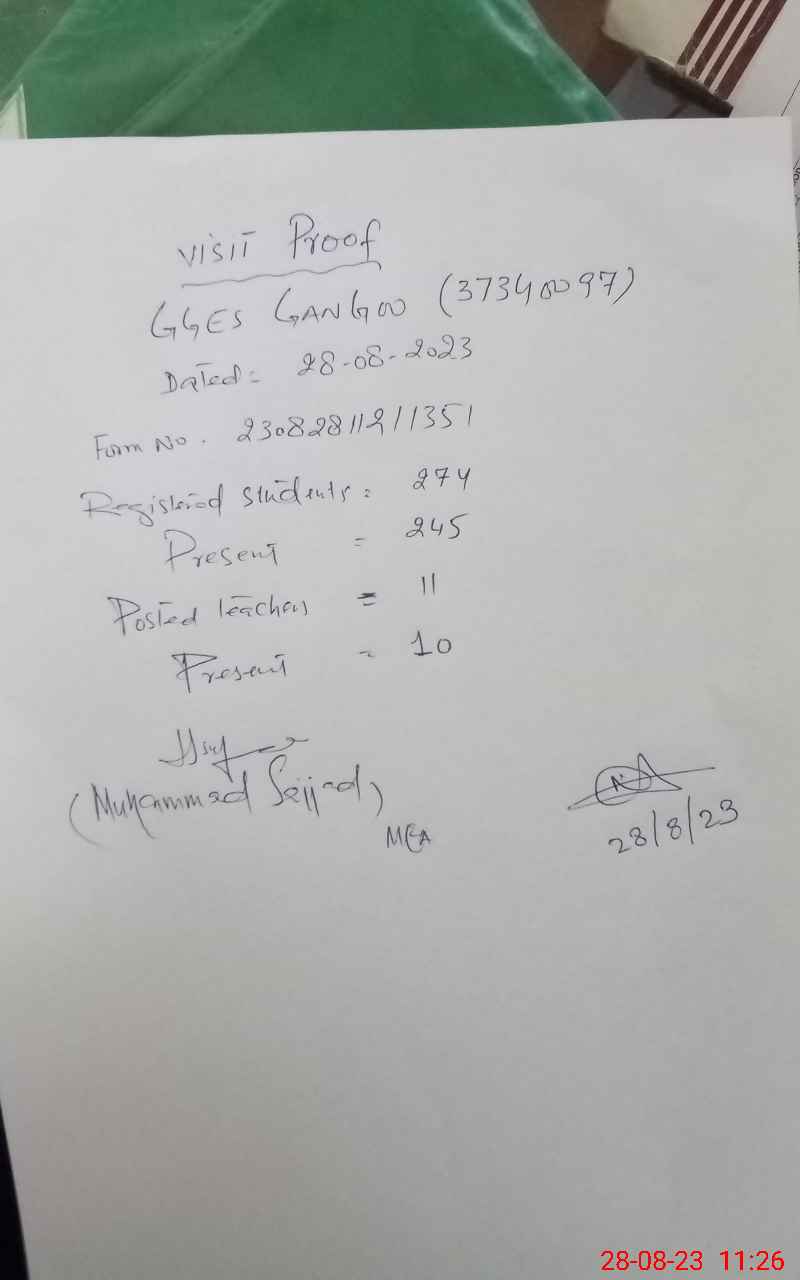 Visit Proof
GGES GANGOO (37340097)
Dated = 28-08-2023
Form No. 23082811211351
Registered students = 274
Present = 245
Posted teachers = 11
Present = 10
(Muhammad Sajjad)
MEA
28/8/23
28-08-23 11:26